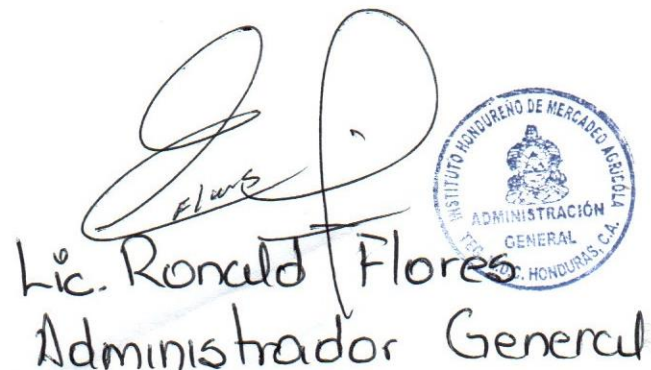 Flores
INSTITUTO HONDUREÑO DE MERCADEO AGRICOLA
ADMINISTRACIÓN
GENERAL
TEG. M.D.C. HONDURAS, C.A.
Lic. Ronald Flores
Administrador General